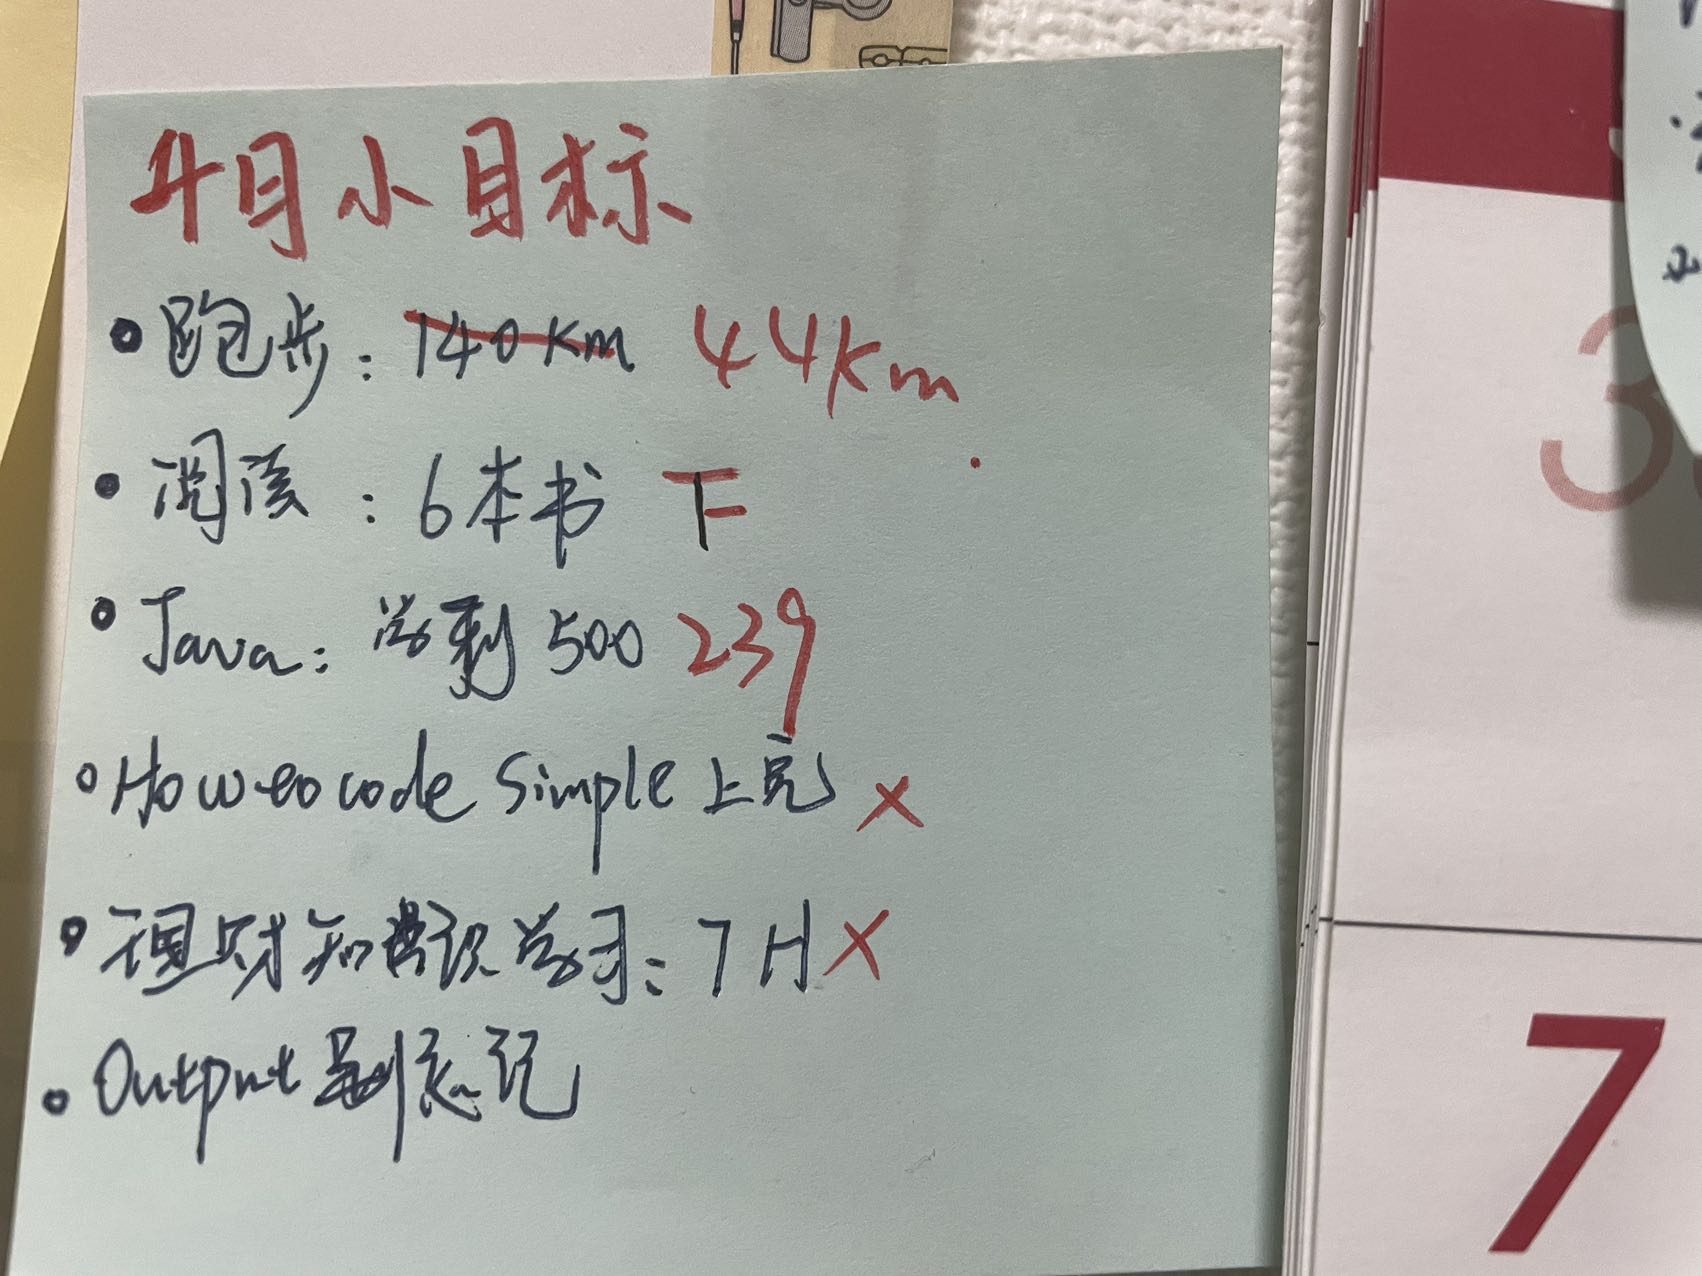 4月小目标
• 跑步：140km 44km
• 阅读：6本书 下
• Java：学剩 500 239
• How to code simple 上完 ×
• 理财知识学习：7H ×
• Output 别忘记
3
7